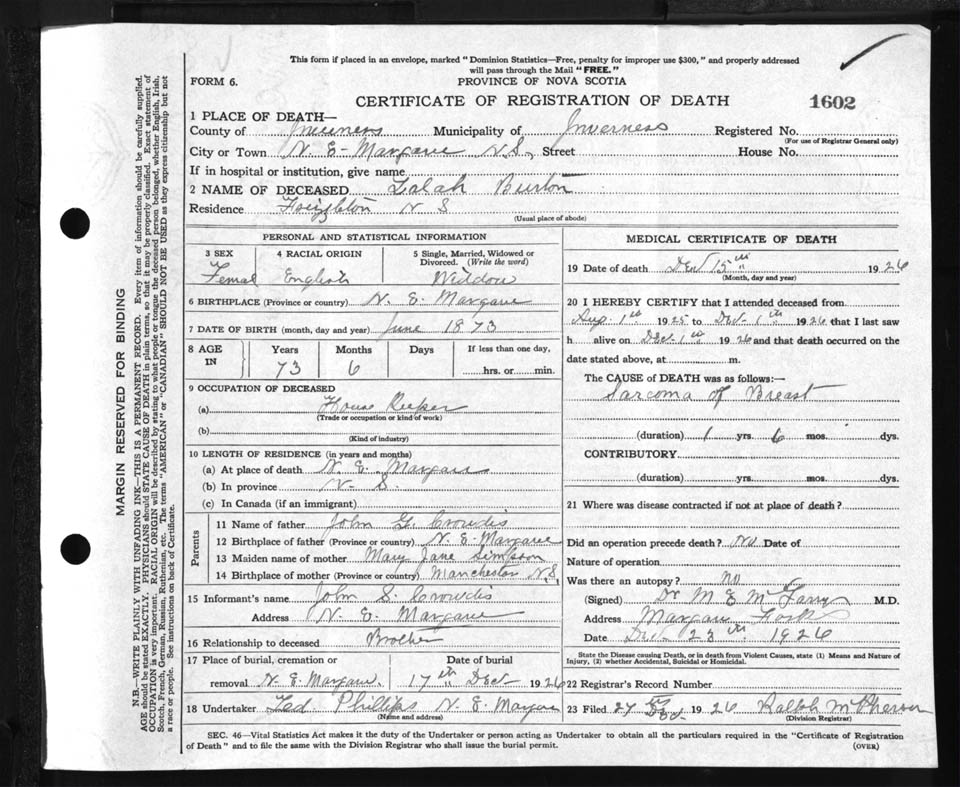 This form if placed in an envelope, marked "Dominion Statistics—Free, penalty for improper use $300," and properly addressed
will pass through the Mail "FREE."
FORM 6.
PROVINCE OF NOVA SCOTIA
CERTIFICATE OF REGISTRATION OF DEATH
1602
1 PLACE OF DEATH—
County of Inverness Municipality of Inverness Registered No.
(For use of Registrar General only)
City or Town N. E- Margaree N.S., Street House No.
If in hospital or institution, give name
2 NAME OF DECEASED Zalah Burton
Residence N S
(Usual place of abode)
PERSONAL AND STATISTICAL INFORMATION
3 SEX 4 RACIAL ORIGIN 5 Single, Married, Widowed or
Divorced. (Write the word)
Femal English Widdow
6 BIRTHPLACE (Province or country) N. E. Margaree
7 DATE OF BIRTH (month, day and year) June 1873
8 AGE IN Years Months Days If less than one day,
73 6 hrs. or min.
9 OCCUPATION OF DECEASED
(a) House Keeper
(Trade or occupation or kind of work)
(b)
(Kind of industry)
10 LENGTH OF RESIDENCE (in years and months)
(a) At place of death N. E. Margaree
(b) In province N. S.
(c) In Canada (if an immigrant)
Parents
11 Name of father John G. Crowdis
12 Birthplace of father (Province or country) N. E. Margaree
13 Maiden name of mother Mary Jane Simpson
14 Birthplace of mother (Province or country) Manchester N.S.
15 Informant's name John S. Crowdis
Address N. E. Margaree
16 Relationship to deceased Brother
17 Place of burial, cremation or Date of burial
removal N. E. Margaree. 17th Dect 1926
18 Undertaker Ted Phillips N. E. Margaree
(Name and address)
MEDICAL CERTIFICATE OF DEATH
19 Date of death Dec 15th 1926
(Month, day and year)
20 I HEREBY CERTIFY that I attended deceased from
Aug. 1st 1925 to Dec. 1st 1926 that I last saw
h alive on Dec. 1st 1926 and that death occurred on the
date stated above, at m.
The CAUSE of DEATH was as follows:—
Sarcoma of Breast
(duration) 1 yrs. 6 mos. dys.
CONTRIBUTORY
(duration) yrs. mos. dys.
21 Where was disease contracted if not at place of death?
Did an operation precede death? No Date of
Nature of operation
Was there an autopsy? no
(Signed) Dr M E M M.D.
Address Margaree Forks
Date Dec. 23th 1926
State the Disease causing Death, or in death from Violent Causes, state (1) Means and Nature of
Injury, (2) whether Accidental, Suicidal or Homicidal.
22 Registrar's Record Number
23 Filed 27 Dec 1926 Ralph McPherson
(Division Registrar)
SEC. 46—Vital Statistics Act makes it the duty of the Undertaker or person acting as Undertaker to obtain all the particulars required in the "Certificate of Registration
of Death" and to file the same with the Division Registrar who shall issue the burial permit.
(OVER)
MARGIN RESERVED FOR BINDING
N.B.—WRITE PLAINLY WITH UNFADING INK—THIS IS A PERMANENT RECORD. Every item of information should be carefully supplied.
AGE should be stated EXACTLY. PHYSICIANS should STATE CAUSE OF DEATH in plain terms, so that it may be properly classified. Exact statement of
OCCUPATION is very important. RACIAL ORIGIN will be described by stating to what people or tongue the deceased person belonged, whether English, Irish,
Scotch, French, German, Russian, Ruthenian, etc. The terms "AMERICAN" or "CANADIAN" SHOULD NOT BE USED as they express citizenship but not
a race or people. See instructions on back of Certificate.